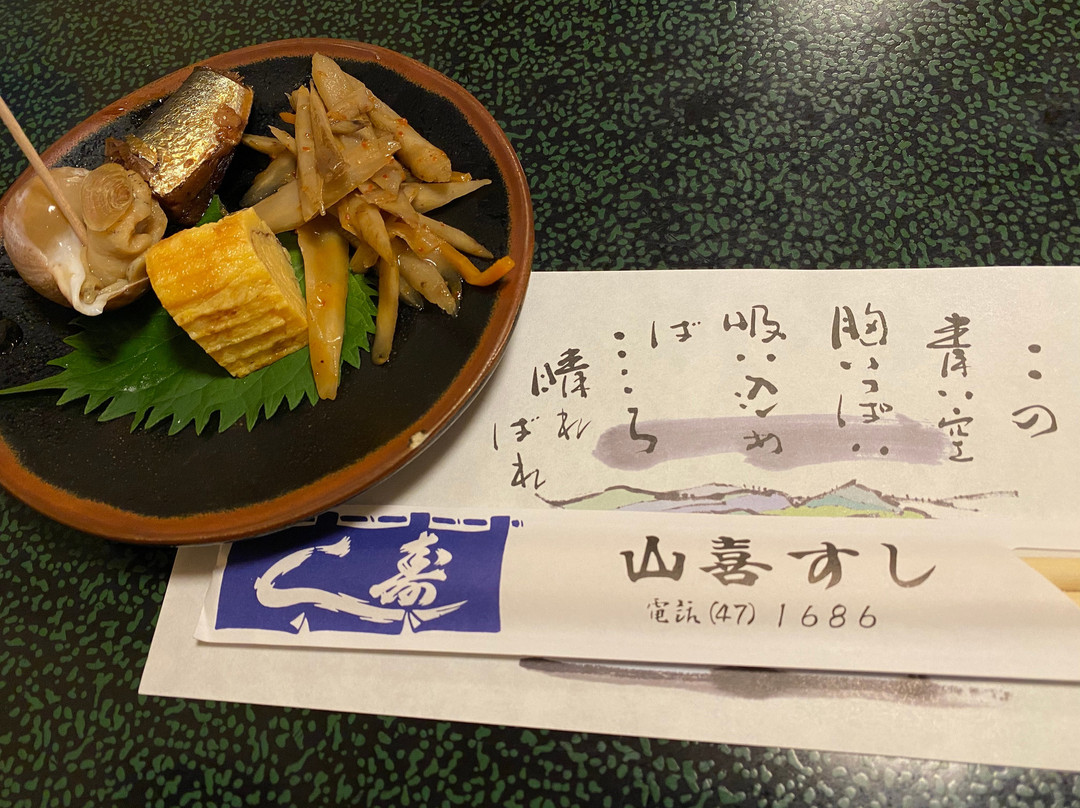 この
青い空
胸いっぱい
吸い込め
ば
こころ
晴れ
ばれ
寿し
山喜すし
電話(47)1686